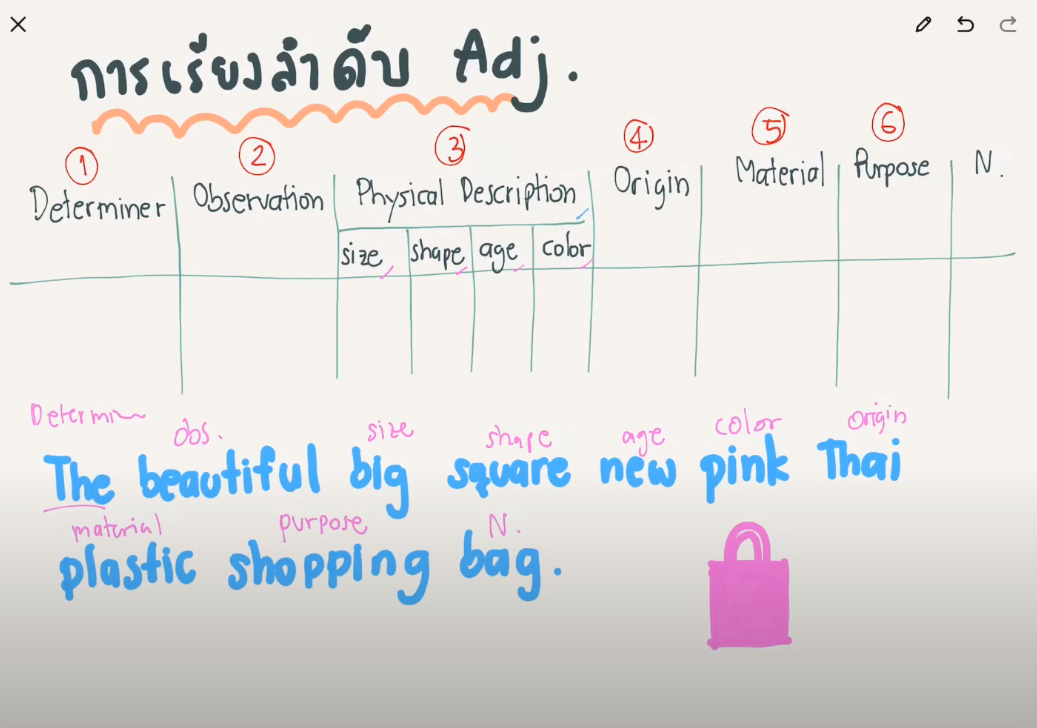 การเรียงลำดับ Adj.
1 2 3 4 5 6
Determiner Observation Physical Description Origin Material Purpose N.
size shape age color
Determin obs. size shape age color origin
The beautiful big square new pink Thai
material purpose N.
plastic shopping bag.